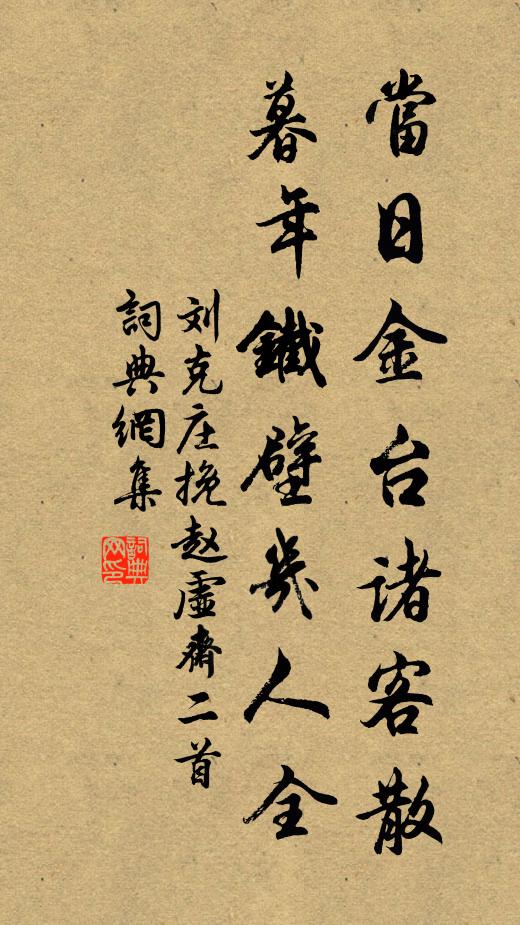 當日金台诸客散
暮年鐵壁幾人全
刘克庄挽赵虚齋二首
詞典網集
詞典
网印